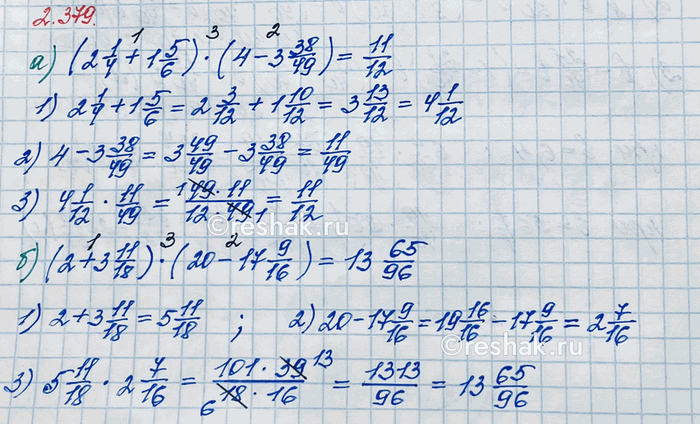 2.379.
1 3 2
а) (2 1/4 + 1 5/6) · (4 − 3 38/49) = 11/12
1) 2 1/4 + 1 5/6 = 2 3/12 + 1 10/12 = 3 13/12 = 4 1/12
2) 4 − 3 38/49 = 3 49/49 − 3 38/49 = 11/49
3) 4 1/12 · 11/49 = 1 49 · 11 / 12 · 49 1 = 11/12
©reshak.ru
1 3 2
б) (2 + 3 11/18) · (20 − 17 9/16) = 13 65/96
1) 2 + 3 11/18 = 5 11/18 ; 2) 20 − 17 9/16 = 19 16/16 − 17 9/16 = 2 7/16
©reshak.ru
3) 5 11/18 · 2 7/16 = 101 · 39 13 / 6 18 · 16 = 1313/96 = 13 65/96